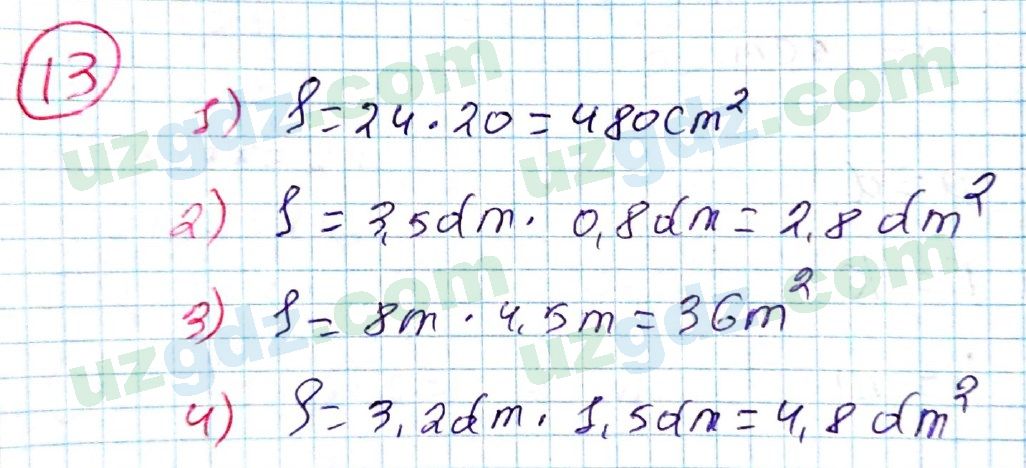 13
1) S = 24 · 20 = 480cm²
2) S = 3,5dm · 0,8dm = 2,8 dm²
3) S = 8m · 4,5m = 36m²
4) S = 3,2dm · 1,5dm = 4,8 dm²
uzgdz.com
uzgdz.com
uzgdz.com
uzgdz.com